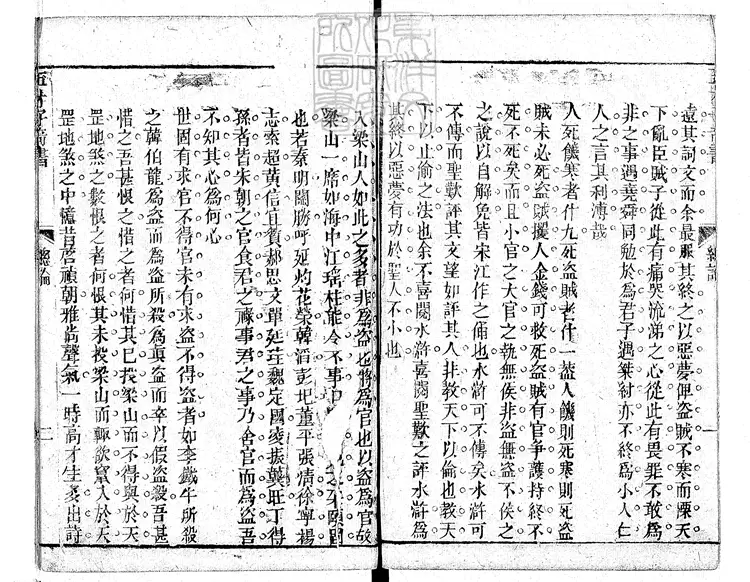 遠其詞文而余最服其終之以惡夢俾盜賊不寒而慄天
下亂臣賊子從此有痛哭流涕之心從此有畏罪不敢為
非之事遇堯舜同勉於為君子遇桀紂亦不終為小人仁
人之言其利溥哉
人死饑寒者什九死盜賊者什一盜人饑則死寒則死盜
賊未必死盜賊攫人金錢可救死盜賊有官爭護持終不
死不死矣而且小官之大官之孰無侯非盜無盜不侯之
之說以自解免皆宋江作之俑也水滸可不傳矣水滸可
不傳而聖歎評其文望如評其人非教天下以偷也教天
下以止偷之法也余不喜閱水滸喜閱聖歎之評水滸為
其終以惡夢有功於聖人不小也
五才子奇書
總論
入梁山人如此之多者非為盜也將為官也以盜為官故
梁山一席如海中江瑤柱能令不事
也若秦明關勝呼延灼花榮韓滔彭玘董平張清徐寧楊
志索超黃信宣贊郝思文單廷珪魏定國凌振龔旺丁得
孫者皆宋朝之官食君之祿事君之事乃舍官而為盜吾
不知其心為何心
世固有求官不得官未有求盜不得盜者如李鐵牛所殺
之韓伯龍為盜而為盜所殺為真盜而卒以假盜殺吾甚
惜之吾甚恨之惜之者何惜其已投梁山而不得與於天
罡地煞之數恨之者何恨其未投梁山而輒欲竄入於天
罡地煞之中憶昔啓禎朝雅尚聲氣一時高才生多出詩
二